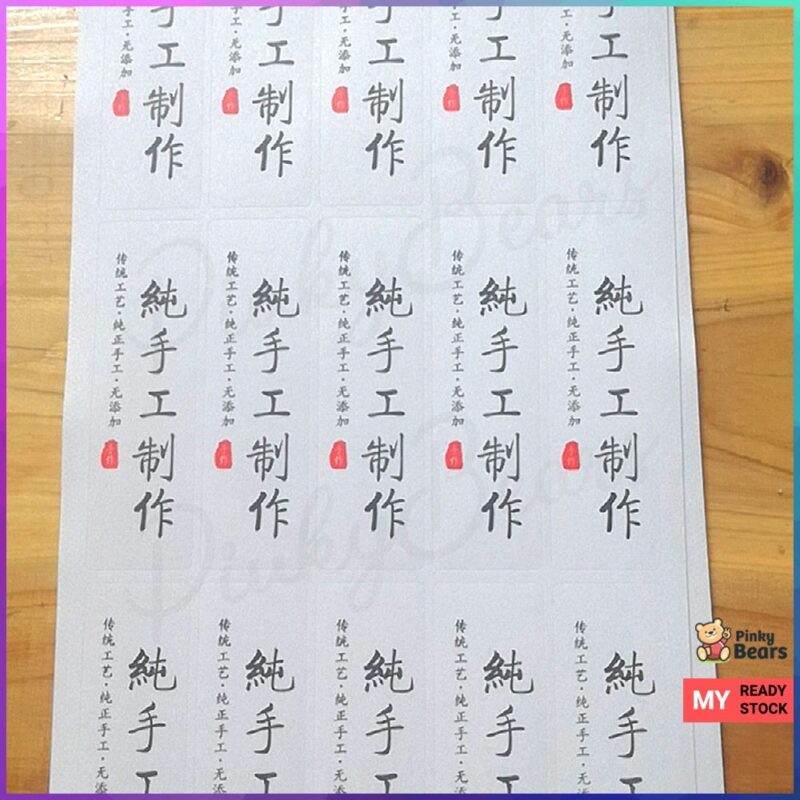 手工制作
工·无添加
手作
手工制作
工·无添加
手作
手工制作
工·无添加
手作
手工制作
工·无添加
手作
手工制作
工·无添加
手作
純手工制作
传统工艺·纯正手工·无添加
手作
純手工制作
传统工艺·纯正手工·无添加
手作
純手工制作
传统工艺·纯正手工·无添加
手作
純手工制作
传统工艺·纯正手工·无添加
手作
純手工制作
传统工艺·纯正手工·无添加
手作
純手工
传统工艺·纯正手工·无
純手工
传统工艺·纯正手工·无
純手工
传统工艺·纯正手工·无
純手工
传统工艺·纯正手工·无
純手工
传统工艺·纯正手工·无
Pinky Bears
Pinky Bears
Pinky
Bears
MY
READY
STOCK